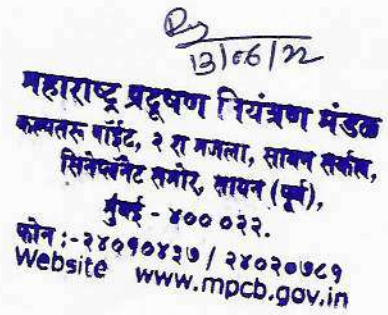 13/06/22
महाराष्ट्र प्रदूषण नियंत्रण मंडळ
कल्पतरू पॉईंट, २ रा मजला, सायन सर्कल,
सिनेप्लॅनेट समोर, सायन (पूर्व),
मुंबई - ४०० ०२२.
फोन :- २४०१०४३७ / २४०२०७८१
Website www.mpcb.gov.in